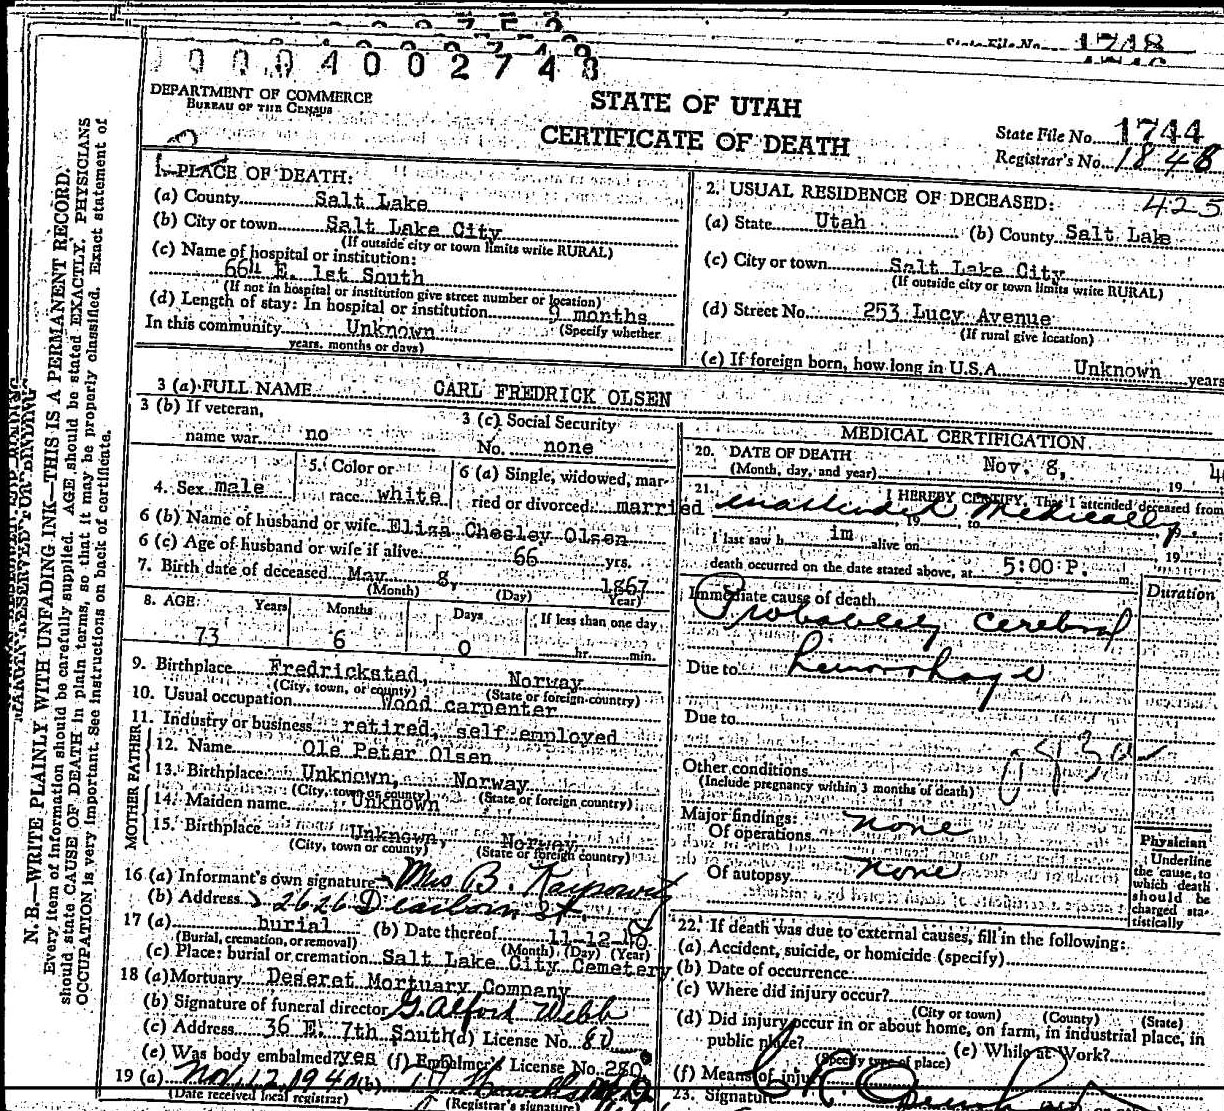 0004002748
State File No. 1718
DEPARTMENT OF COMMERCE
BUREAU OF THE CENSUS
STATE OF UTAH
CERTIFICATE OF DEATH
State File No. 1744
Registrar's No. 1848
1. PLACE OF DEATH:
(a) County Salt Lake
(b) City or town Salt Lake City
(If outside city or town limits write RURAL)
(c) Name of hospital or institution:
664 E. 1st South
(If not in hospital or institution give street number or location)
(d) Length of stay: In hospital or institution 9 months
In this community Unknown (Specify whether
years, months or days)
2. USUAL RESIDENCE OF DECEASED: 425
(a) State Utah (b) County Salt Lake
(c) City or town Salt Lake City
(If outside city or town limits write RURAL)
(d) Street No. 253 Lucy Avenue
(If rural give location)
(e) If foreign born, how long in U.S.A. Unknown years
3 (a) FULL NAME CARL FREDRICK OLSEN
3 (b) If veteran,
name war no
3 (c) Social Security
No. none
4. Sex male
5. Color or
race white
6 (a) Single, widowed, mar-
ried or divorced married
6 (b) Name of husband or wife Eliza Chesley Olsen
6 (c) Age of husband or wife if alive 66 yrs.
7. Birth date of deceased May 8, 1867
(Month) (Day) Year)
8. AGE: Years Months Days If less than one day
73 6 0 hr. min.
9. Birthplace Fredrickstad, Norway
(City, town, or county) (State or foreign country)
10. Usual occupation Wood carpenter
11. Industry or business retired, self employed
FATHER
12. Name Ole Peter Olsen
13. Birthplace Unknown, Norway
(City, town or county) (State or foreign country)
MOTHER
14. Maiden name Unknown
15. Birthplace Unknown, Norway
(City, town or county) (State or foreign country)
16 (a) Informant's own signature Mrs B.
(b) Address 2626 Dearborn St
17 (a) burial (b) Date thereof 11-12-40
(Burial, cremation, or removal) (Month) (Day) (Year)
(c) Place: burial or cremation Salt Lake City Cemetery
18 (a) Mortuary Deseret Mortuary Company
(b) Signature of funeral director G. Alford Webb
(c) Address 36 E. 7th South (d) License No. 80
(e) Was body embalmed? yes (f) Embalmer's License No. 280
19 (a) Nov. 12, 1940 (b)
(Date received local registrar) (Registrar's signature)
MEDICAL CERTIFICATION
20. DATE OF DEATH
(Month, day, and year) Nov. 8, 19 4
21. I HEREBY CERTIFY, That I attended deceased from
unattended Medically
19 to 19
I last saw h im alive on 19
death occurred on the date stated above, at 5:00 P. m.
Immediate cause of death Duration
Probably cerebral
Due to hemorrhage
Due to
Other conditions
(Include pregnancy within 3 months of death)
Major findings:
Of operations none
Of autopsy none
Physician
Underline
the cause to
which death
should be
charged sta-
tistically
22. If death was due to external causes, fill in the following:
(a) Accident, suicide, or homicide (specify)
(b) Date of occurrence
(c) Where did injury occur?
(City or town) (County) (State)
(d) Did injury occur in or about home, on farm, in industrial place, in
public place?
(Specify type of place) (e) While at Work?
(f) Means of injury
23. Signature
N. B.—WRITE PLAINLY WITH UNFADING INK—THIS IS A PERMANENT RECORD.
Every item of information should be carefully supplied. AGE should be stated EXACTLY. PHYSICIANS
should state CAUSE OF DEATH in plain terms, so that it may be properly classified. Exact statement of
OCCUPATION is very important. See instructions on back of certificate.